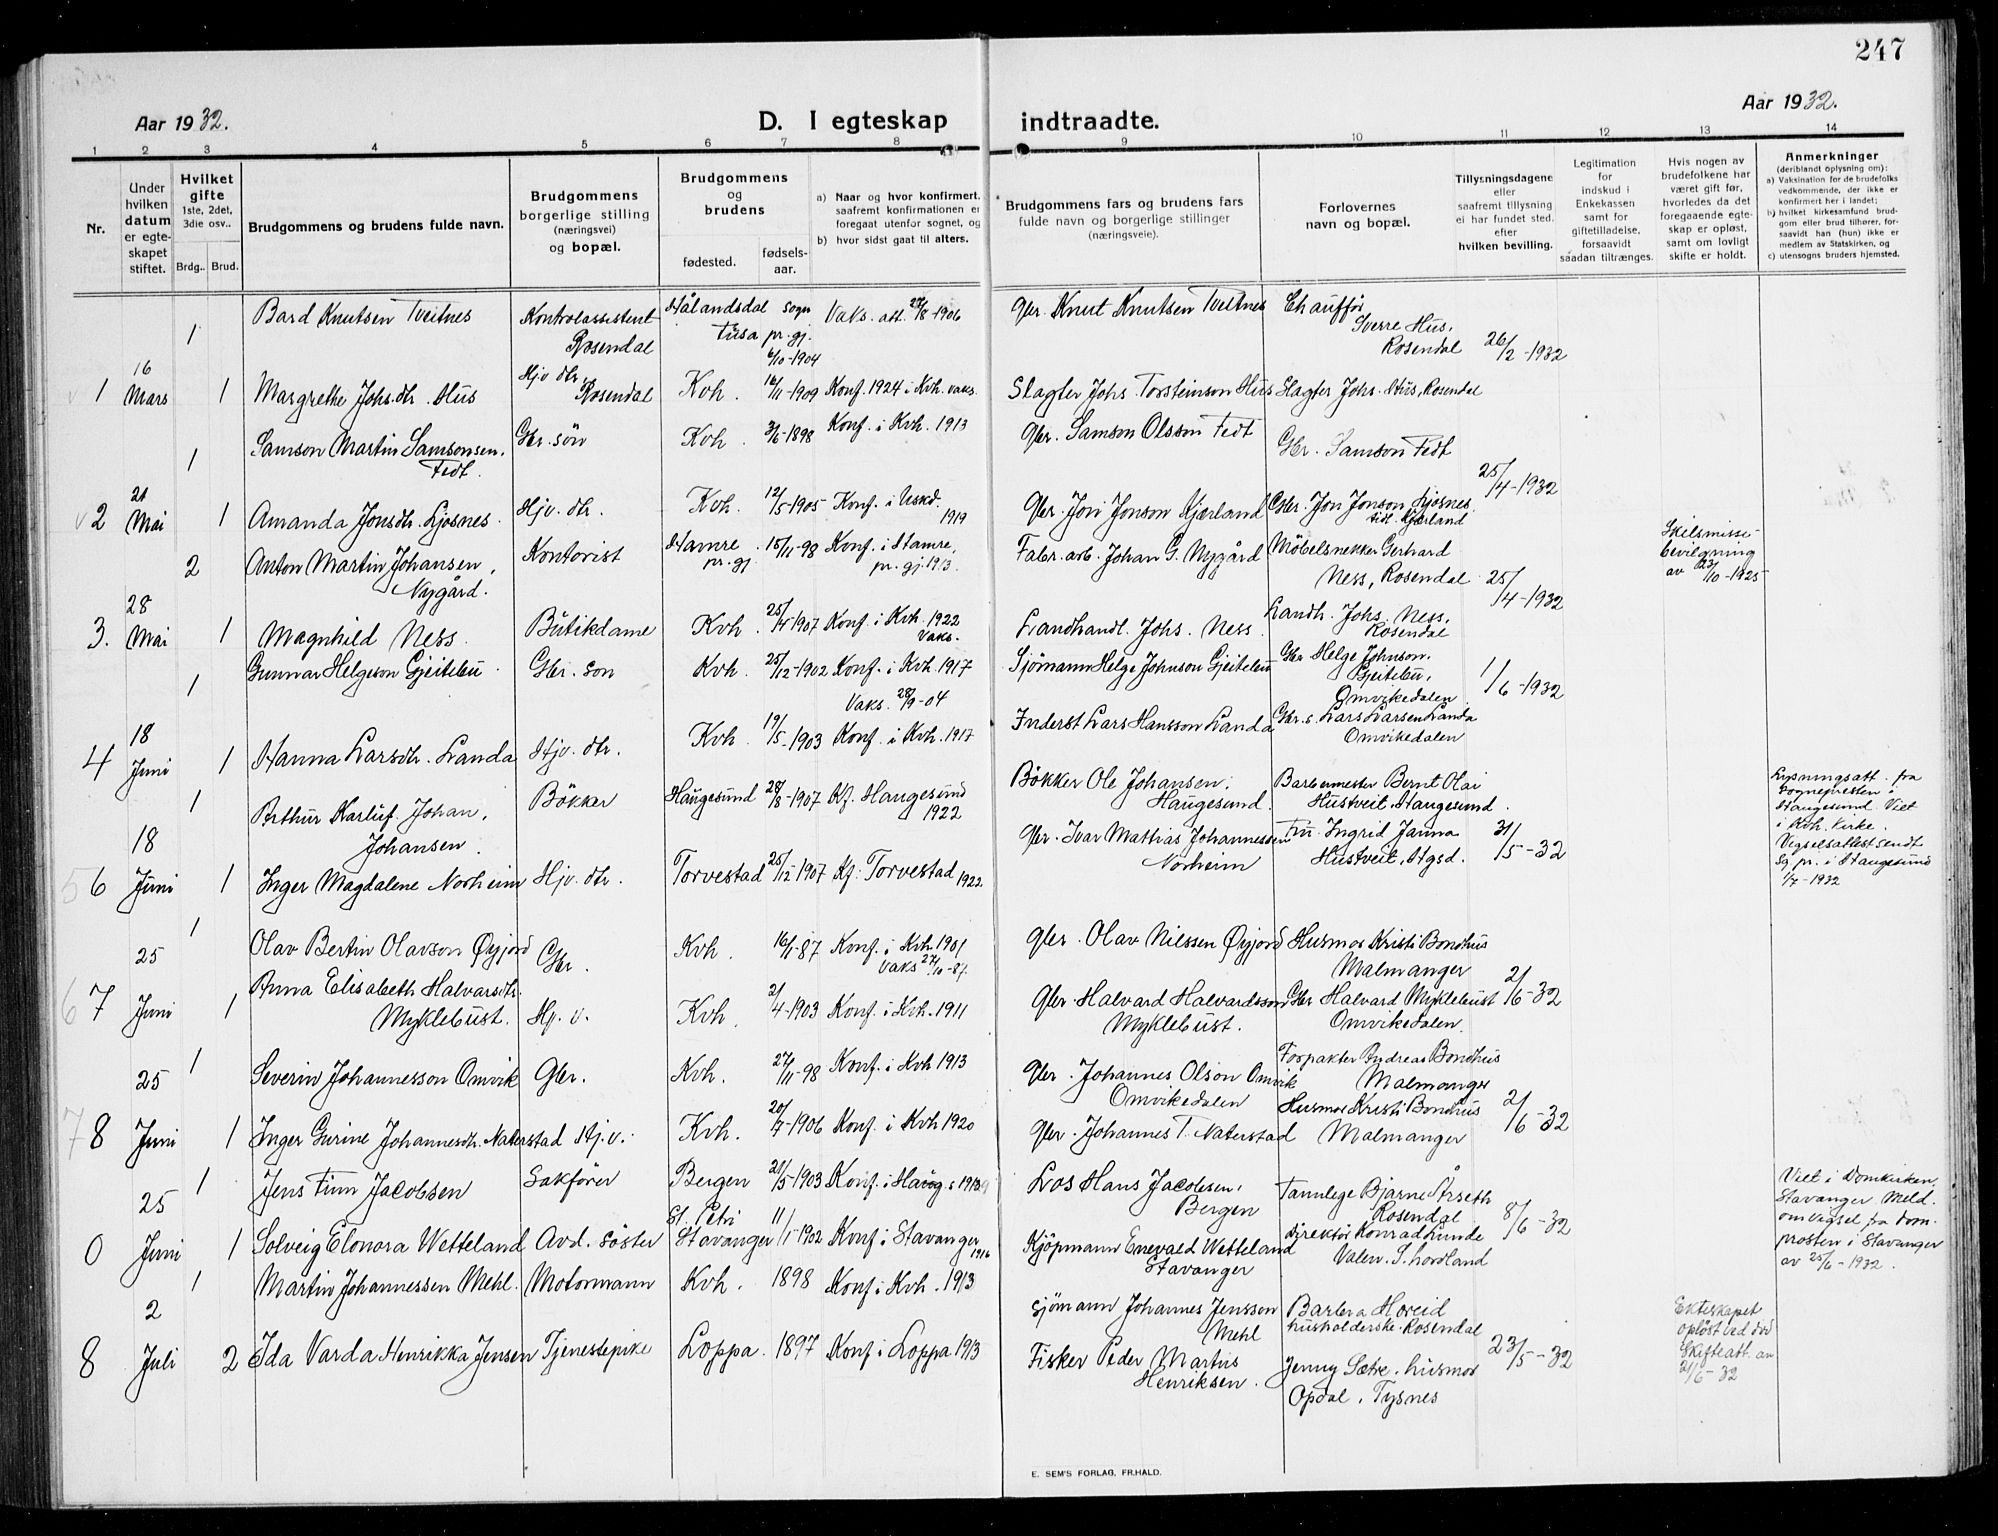 247
Aar 1932.
D. I egteskap indtraadte.
Aar 1932.
1 2 3 4 5 6 7 8 9 10 11 12 13 14
Nr.
Under
hvilken
datum
er egte-
skapet
stiftet.
Hvilket
gifte
1ste, 2det,
3die osv..
Brdg.. Brud.
Brudgommens og brudens fulde navn.
Brudgommens
borgerlige stilling
(næringsvei)
og bopæl.
Brudgommens
og
brudens
fødested.
fødsels-
aar.
a) Naar og hvor konfirmert.
saafremt konfirmationen er
foregaat utenfor sognet, og
b) hvor sidst gaat til alters.
Brudgommens fars og brudens fars
fulde navn og borgerlige stillinger
(næringsveie).
Forlovernes
navn og bopæl.
Tillysningsdagene
eller
saafremt tillysning
ei har fundet sted.
efter
hvilken bevilling.
Legitimation
for
indskud i
Enkekassen
samt for
giftetilladelse,
forsaavidt
saadan tiltrænges.
Hvis nogen av
brudefolkene har
været gift før,
hvorledes da det
foregaaende egte-
skap er opløst,
samt om lovligt
skifte er holdt.
Anmerkninger
(deriblandt oplysning om):
a) Vaksination for de brudefolks
vedkommende, der ikke er
konfirmert her i landet;
b) hvilket kirkesamfund brud-
gom eller brud tilhører, for-
saavidt han (hun) ikke er
medlem av Statskirken, og
c) utensogns bruders hjemsted.
1 Bard Knutsen Tveitnes Kontrolassistent Rosendal Hålandsdal sogn Fusa pr.gj. 6/10-1904 Vaks. att. 27/8-1906 Gbr. Knut Knutsen Tveitnes Chauffør Sverre Hus, Rosendal 26/2-1932
1 16 Mars 1 Margrethe Johs.dtr. Hus Hjv. dtr, Rosendal Kvh. 16/11-1909 Konf. 1924 i Kvh. vaks. Slagter Johs. Torsteinson Hus Slagter Johs. Hus, Rosendal
1 Samson Martin Samsonsen Fedt. Gbr. søn Kvh. 3/6-1898 Konf. i Kvh. 1913 Gbr. Samson Olsson Fedt Gbr. Samson Fedt 25/4-1932
2 21 Mai 1 Amanda Jonsdtr. Ljosnes Hjv. dtr. Kvh. 12/5-1905 Konf. i Uskd. 1919 Gbr. Jon Jonson Kjærland Gbr. Jon Jonson Ljosnes tidl. Kjærland
2 Anton Martin Johansen, Nygård. Kontorist Hamre pr. gj. 15/11-98 Konf. i Hamre, pr. gj. 1913. Fabr. arb. Johan G. Nygård Møbelsnekker Gerhard Ness, Rosendal 25/4-1932 Skilsmisse-
bevilgning
av 23/10-1925
3. 28 Mai 1 Magnhild Ness. Butikdame Kvh. 25/4-1907 Konf. i Kvh. 1922 Vaks. Landhandl. Johs. Ness Landh. Johs. Ness, Rosendal
1 Gunnar Helgeson Gjeitebu Gbr. son Kvh. 25/12-1902 Konf. i Kvh. 1917 Vaks. 28/9-04 Sjømann Helge Johnson Gjeitebu Gbr Helge Johnson. Gjeitebu, Omvikedalen 1/6-1932
4 18 Juni 1 Hanna Larsdtr. Landa Hjv. dtr. Kvh. 19/5-1903 Konf. i Kvh. 1917 Inderst Lars Hansson Landa Gbr. s. Lars Larsen Landa Omvikedalen
1 Arthur Karluf Johan, Johansen. Bøkker Haugesund 28/8-1907 Kf. Haugesund 1922 Bøkker Ole Johansen. Haugesund. Barbermester Bernt Olai Hustveit, Haugesund. 31/5-32 Lysningsatt. fra
Sognepresten i
Haugesund. Viet
i Kvh. Kirke.
Vegselsattest sendt
sg.pr. i Haugesund
1/7-1932
5 6 18 Juni 1 Inger Magdalene Norheim Hjv. dtr. Torvestad 25/12-1907 Kf: Torvestad 1922 Gbr. Ivar Mathias Johannessen Norheim Fru. Ingrid Janna Hustveit, Hgsd.
1 Olav Bertin Olavson Øyjord Gbr. Kvh. 16/1-87 Konf. i Kvh. 1901 Vaks 27/10-87. Gbr. Olav Nilssen Øyjord Husmor Kristi Bondhus Malmanger 2/6-32
6 7 25 Juni 1 Anna Elisabeth Halvarsdtr. Myklebust. Hj. v. Kvh. 2/4-1903 Konf. i Kvh. 1911 Gbr. Halvard Halvardsson Myklebust. Gbr Halvard Myklebust Omvikedalen.
1 Severin Johannesson Omvik Gbr. Kvh. 27/11-98 Konf. i Kvh 1913 Gbr. Johannes Olson Omvik Omvikedalen Forpakter Andreas Bondhus Malmanger 2/6-32
7 8 25 Juni 1 Inger Gurine Johannesdtr. Naterstad Hj.v. Kvh. 20/7-1906 Konf. i Kvh 1920 Gbr. Johannes T. Naterstad Husmor Kristi Bondhus Malmanger
1 Jens Finn Jacobsen Sakfører Bergen St. Petri 21/5-1903 Los Hans Jacobsen, Bergen Tannlege Bjarne Årseth Rosendal 8/6-32 Viet i Domkirken,
Stavanger Meld.
om vegsel fra Dom-
prosten i Stavanger
av 25/6-1932.
0 25 Juni 1 Solveig Elonora Wetteland Avd. søster Stavanger 11/1-1902 Konf. i Stavanger 1916 Kjøpmann Enevald Wetteland Stavanger direktør Konrad Lunde Valen. S. hordland
1 Martin Johannessen Mehl. Motormann Kvh. 1898 Konf. i Kvh. 1913 Sjømann Johannes Jensson Mehl Barbra Horeid husholderske. Rosendal 23/5-32 Ekteskapet
opløst ved død
Skifteatt. av
2/6-32
8 2 Juli 2 Ida Varda Henrikka Jensen Tjenestepike Loppa. 1897 Konf. i Loppa 1913 Fisker Peder Martius Henriksen. Jenny Sætre, husmor Opdal, Tysnes
E. SEM'S FORLAG, FR.HALD.